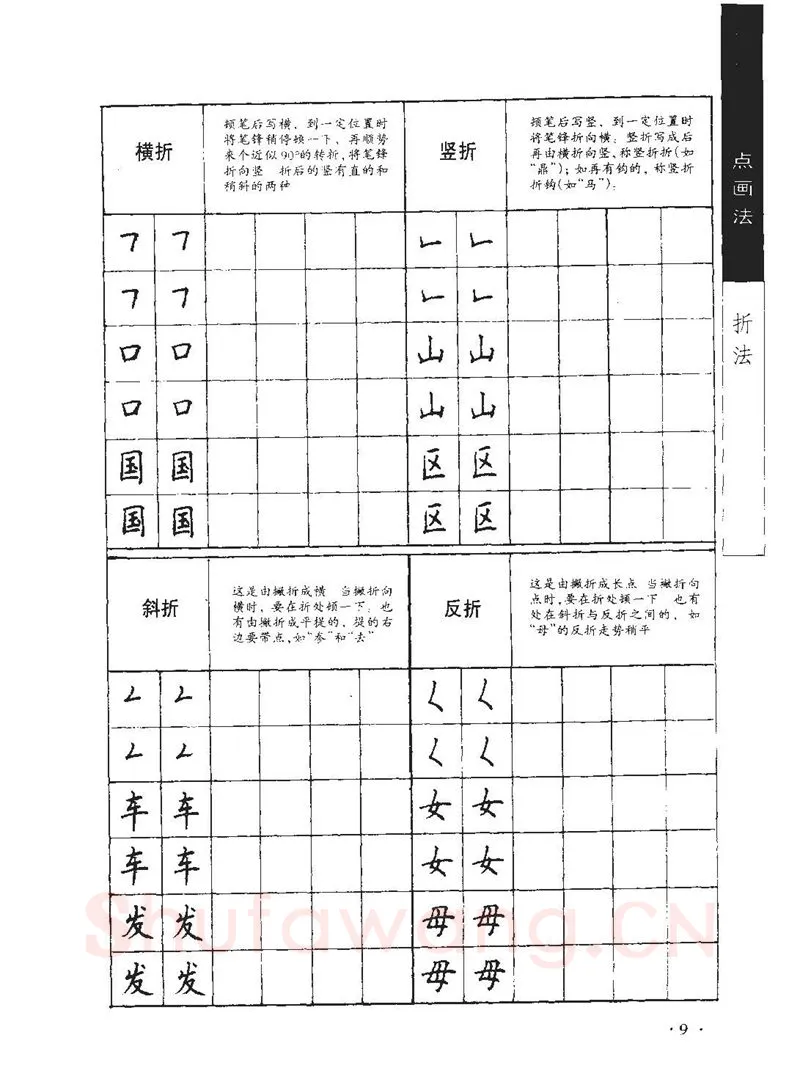 点画法
折法
横折
顿笔后写横，到一定位置时
将笔锋稍停顿一下，再顺势
来个近似90°的转折，将笔锋
折向竖 折后的竖有直的和
稍斜的两种
竖折
顿笔后写竖，到一定位置时
将笔锋折向横；竖折写成后
再由横折向竖，称竖折折(如
“鼎”)；如再有钩的，称竖折
折钩(如“马”)；
㇕ ㇕ ㇗ ㇗
㇕ ㇕ ㇗ ㇗
口 口 山 山
口 口 山 山
国 国 区 区
国 国 区 区
斜折
这是由撇折成横 当撇折向
横时，要在折处顿一下；也
有由撇折成平提的，提的右
边要带点，如“参”和“去”
反折
这是由撇折成长点 当撇折向
点时，要在折处顿一下 也有
处在斜折与反折之间的，如
“母”的反折走势稍平
㇜ ㇜ ㇛ ㇛
㇜ ㇜ ㇛ ㇛
车 车 女 女
车 车 女 女
发 发 母 母
发 发 母 母
Shufawang.CN
·9·